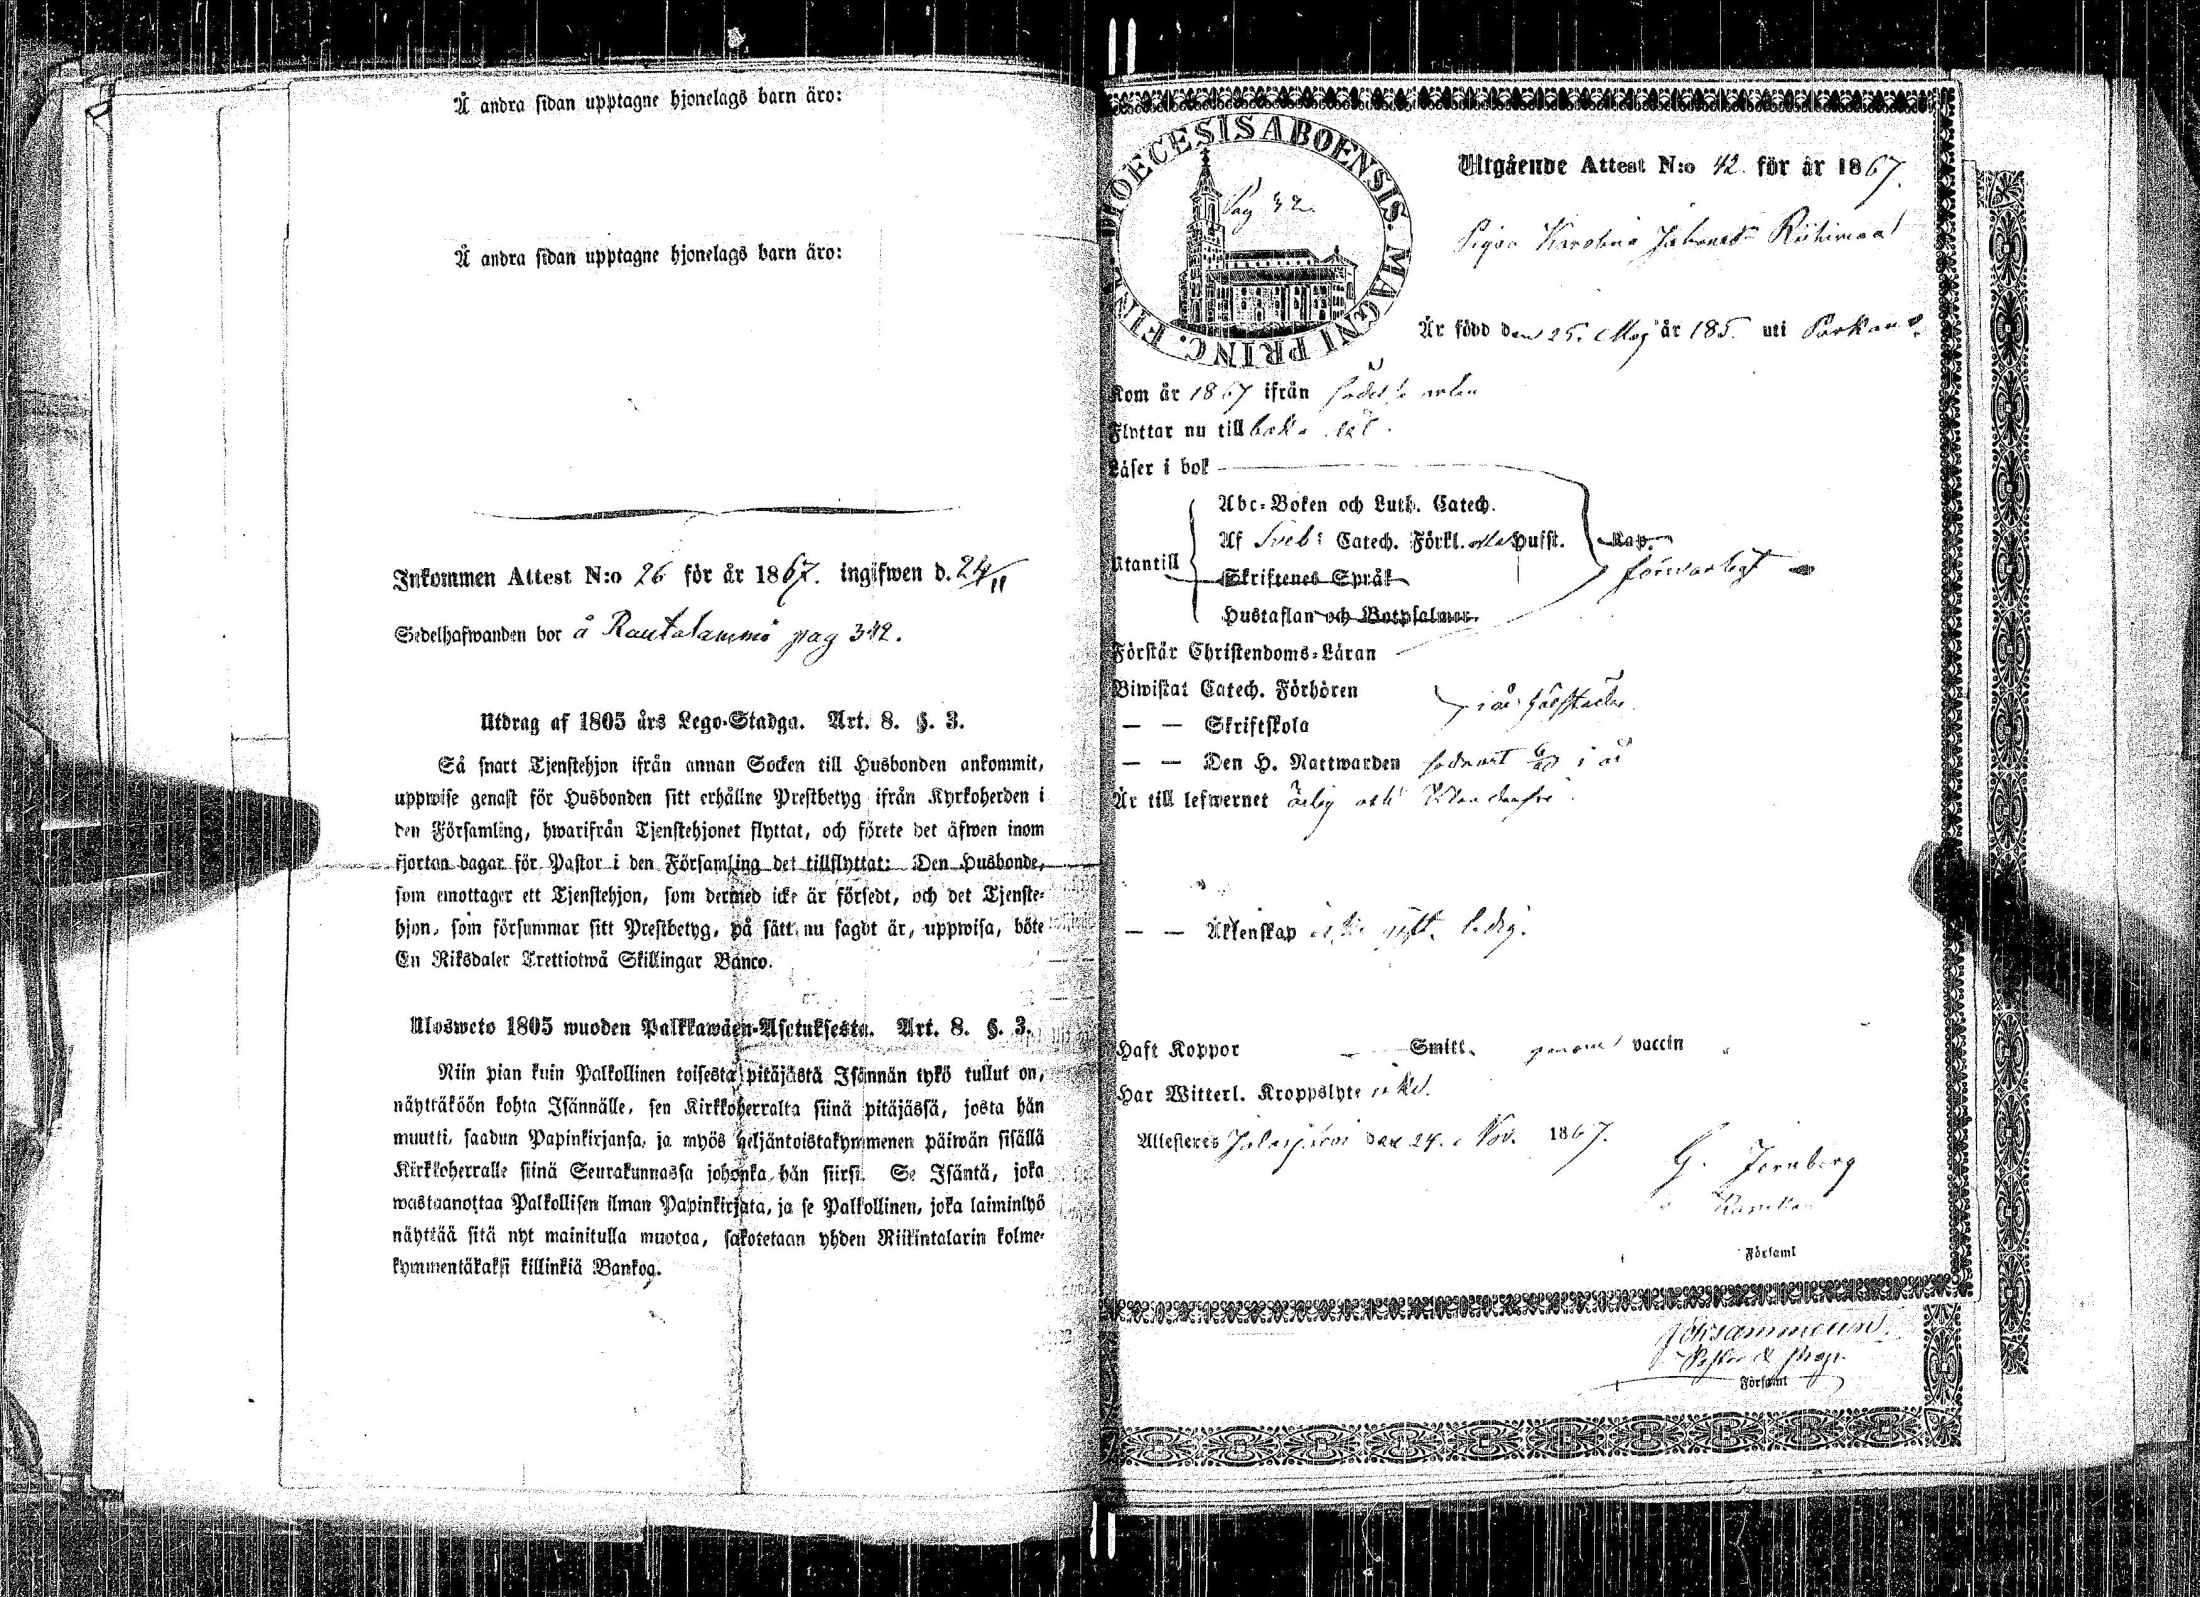 Å andra sidan upptagne hjonelags barn äro:
Å andra sidan upptagne hjonelags barn äro:
Inkommen Attest N:o 26 för år 1867. ingifwen d. 24/11
Sedelhafwanden bor å Rautalammi pag 342.
Utdrag af 1805 års Lego-Stadga. Art. 8. §. 3.
Så snart Tjenstehjon ifrån annan Socken till Husbonden ankommit,
uppwise genast för Husbonden sitt erhållne Prestbetyg ifrån Kyrkoherden i
den Församling, hwarifrån Tjenstehjonet flyttat, och förete det äfwen inom
fjorton dagar för Pastor i den Församling det tillflyttat: Den Husbonde,
som emottager ett Tjenstehjon, som dermed icke är försedt, och det Tjenste-
hjon, som försummar sitt Prestbetyg, på sätt nu sagdt är, uppwisa, böte
En Riksdaler Trettiotwå Skillingar Banco.
Ulosweto 1805 wuoden Palkkawäen-Asetuksesta. Art. 8. §. 3.
Niin pian kuin Palkollinen toisesta pitäjästä Isännän tykö tullut on,
näyttäköön kohta Isännälle, sen Kirkkoherralta siinä pitäjässä, josta hän
muutti, saadun Papinkirjansa, ja myös neljäntoistakymmenen päiwän sisällä
Kirkkoherralle siinä Seurakunnassa johonka hän siirsi. Se Isäntä, joka
wastaanottaa Palkollisen ilman Papinkirjata, ja se Palkollinen, joka laiminlyö
näyttää sitä nyt mainitulla muotoa, sakotetaan yhden Riikintalarin kolme-
kymmentäkaksi killinkiä Bankog.
DIOECESIS ABOENSIS. MAGNI PRINC. FINL.
Pag 32.
Utgående Attest N:o 42. för år 1867.
Pigan Karolina Riihimaa
Är född den 25. Maj år 185. uti Parkano.
Kom år 1867 ifrån födelseorten
Flyttar nu till baka
Läser i bok
Abc-Boken och Luth. Catech.
Af Sveb: Catech. Förkl. Husst. Kap.
Utantill
Skriftenes Språk
försvarligt
Hustaflan och Botpsalmer.
Förstår Christendoms-Läran
Biwistat Catech. Förhören
i år
— — Skriftskola
— — Den H. Nattwarden sednast i år
Är till lefwernet ärlig och
— — Äktenskap gift. ledig.
Haft Koppor — Smitt. genom vaccin
Har Witterl. Kroppslyte
Attesteres Jalasjärvi den 24. Nov. 1867.
G.
Forsaml
Pastor &
Församl